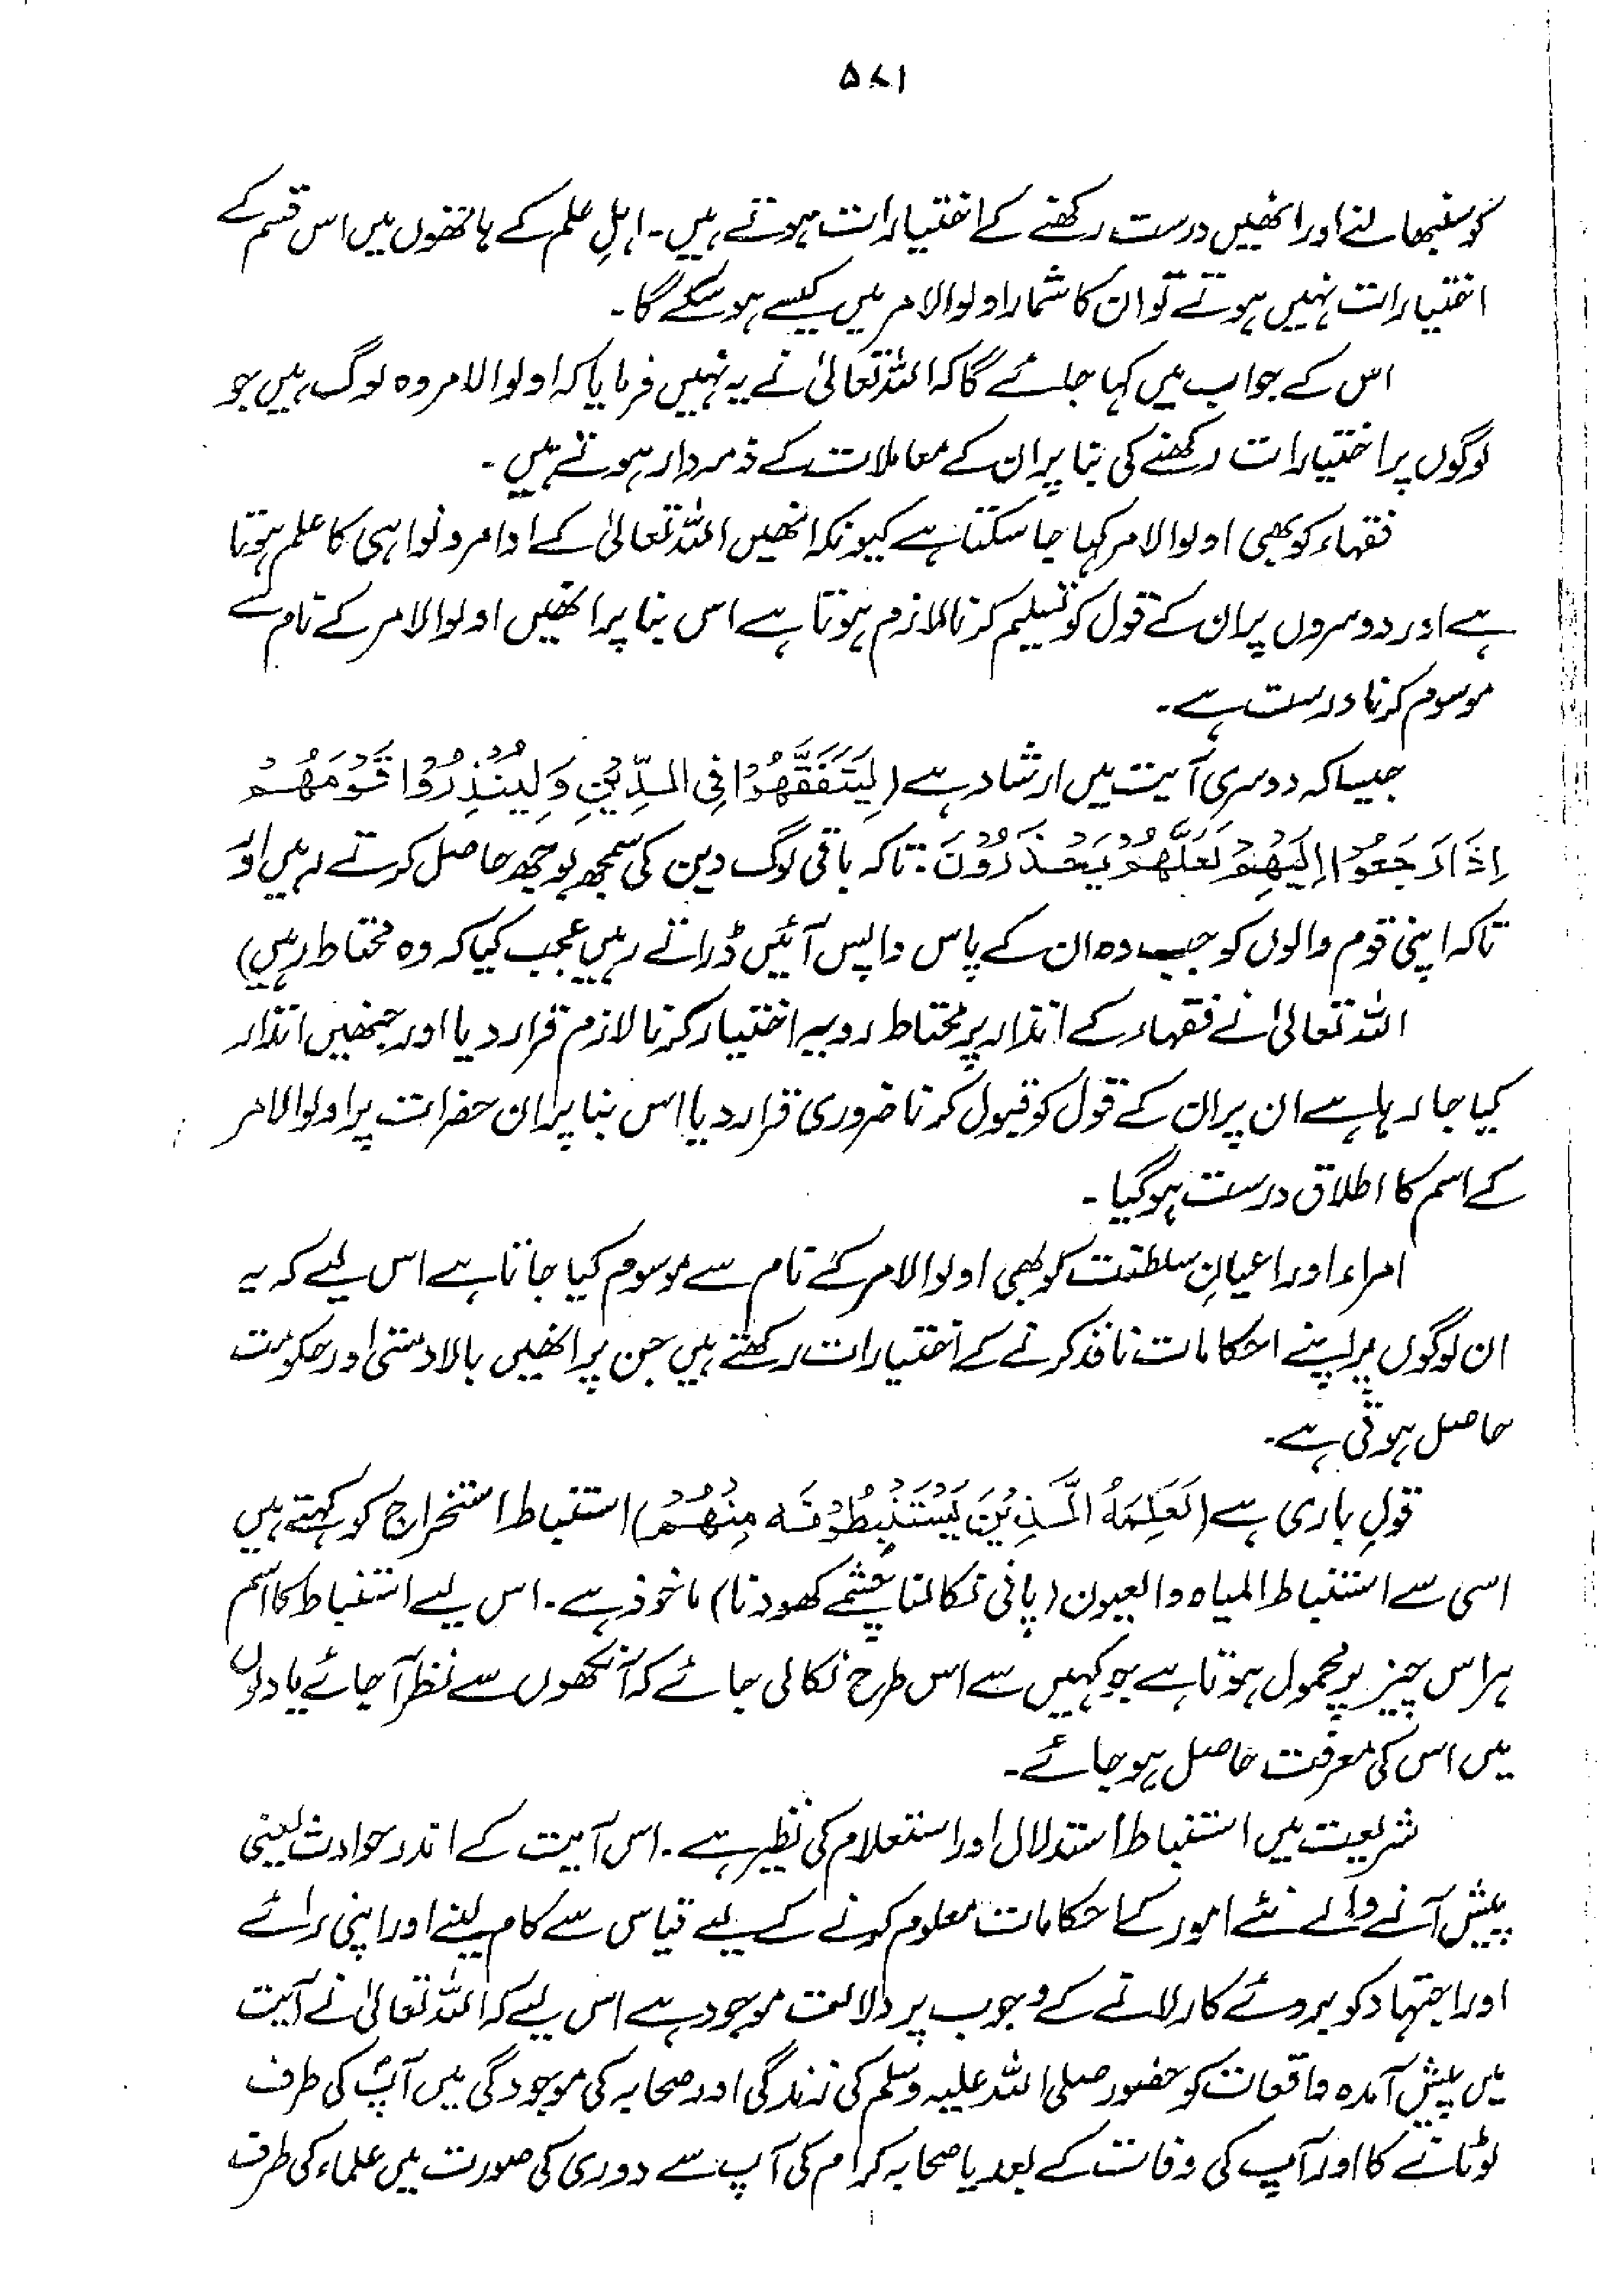 ۵۷۱
کو سنبھالنے اور انھیں درست رکھنے کے اختیارات ہوتے ہیں۔ اہلِ علم کے ہاتھوں میں اس قسم کے
اختیارات نہیں ہوتے تو ان کا شمار اولوالامر میں کیسے ہو سکے گا۔
اس کے جواب میں کہا جائے گا کہ اللہ تعالیٰ نے یہ نہیں فرمایا کہ اولوالامر وہ لوگ ہیں جو
لوگوں پر اختیارات رکھنے کی بنا پر ان کے معاملات کے ذمہ دار ہوتے ہیں۔
فقہاء کو بھی اولوالامر کہا جا سکتا ہے کیونکہ انھیں اللہ تعالیٰ کے اوامر و نواہی کا علم ہوتا
ہے اور دوسروں پر ان کے قول کو تسلیم کرنا لازم ہوتا ہے اس بنا پر انھیں اولوالامر کے نام سے
موسوم کرنا درست ہے۔
جیسا کہ دوسری آیت میں ارشاد ہے (لِيَتَفَقَّهُوْا فِي الدِّيْنِ وَلِيُنْذِرُوْا قَوْمَهُمْ
اِذَا رَجَعُوْا اِلَيْهِمْ لَعَلَّهُمْ يَحْذَرُوْنَ: تاکہ باقی لوگ دین کی سمجھ بوجھ حاصل کرتے رہیں اور
تاکہ اپنی قوم والوں کو جب وہ ان کے پاس واپس آئیں ڈراتے رہیں عجب کیا کہ وہ محتاط رہیں)
اللہ تعالیٰ نے فقہاء کے انذار پر محتاط رویہ اختیار کرنا لازم قرار دیا اور جنھیں انذار
کیا جا رہا ہے ان پر ان کے قول کو قبول کرنا ضروری قرار دیا اس بنا پر ان حضرات پر اولوالامر
کے اسم کا اطلاق درست ہوگیا۔
امراء اور اعیانِ سلطنت کو بھی اولوالامر کے نام سے موسوم کیا جاتا ہے اس لیے کہ یہ
ان لوگوں پر اپنے احکامات نافذ کرنے کے اختیارات رکھتے ہیں جن پر انھیں بالادستی اور حکومت
حاصل ہوتی ہے۔
قولِ باری ہے (لَعَلِمَهُ الَّذِيْنَ يَسْتَنْبِطُوْنَهٗ مِنْهُمْ) استنباط استخراج کو کہتے ہیں
اسی سے استنباط المیاہ والعیون (پانی نکالنا چشمے کھودنا) ماخوذ ہے۔ اس لیے استنباط کا اسم
ہر اس چیز پر محمول ہوتا ہے جو کہیں سے اس طرح نکالی جائے کہ آنکھوں سے نظر آجائے یا دلوں
میں اس کی معرفت حاصل ہو جائے۔
شریعت میں استنباط استدلال اور استعلام کی نظیر ہے۔ اس آیت کے اندر حوادث یعنی
پیش آنے والے نئے امور کے احکامات معلوم کرنے کے لیے قیاس سے کام لینے اور اپنی رائے
اور اجتہاد کو بروئے کار لانے کے وجوب پر دلالت موجود ہے اس لیے کہ اللہ تعالیٰ نے آیت
میں پیش آمدہ واقعات کو حضور صلی اللہ علیہ وسلم کی زندگی اور صحابہ کی موجودگی میں آپؐ کی طرف
لوٹانے کا اور آپ کی وفات کے بعد یا صحابہ کرام کی آپ سے دوری کی صورت میں علماء کی طرف